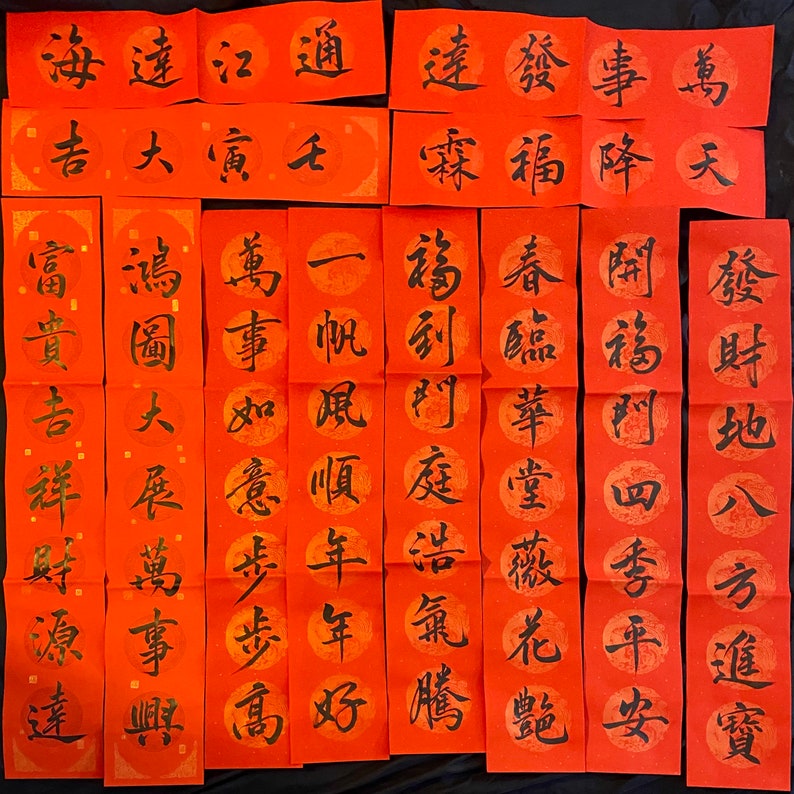 萬事發達
通江達海
天降福霖
壬寅大吉
發財地八方進寶
開福門四季平安
春臨華堂薇花艷
福到門庭浩氣騰
一帆風順年年好
萬事如意步步高
鴻圖大展萬事興
富貴吉祥財源達